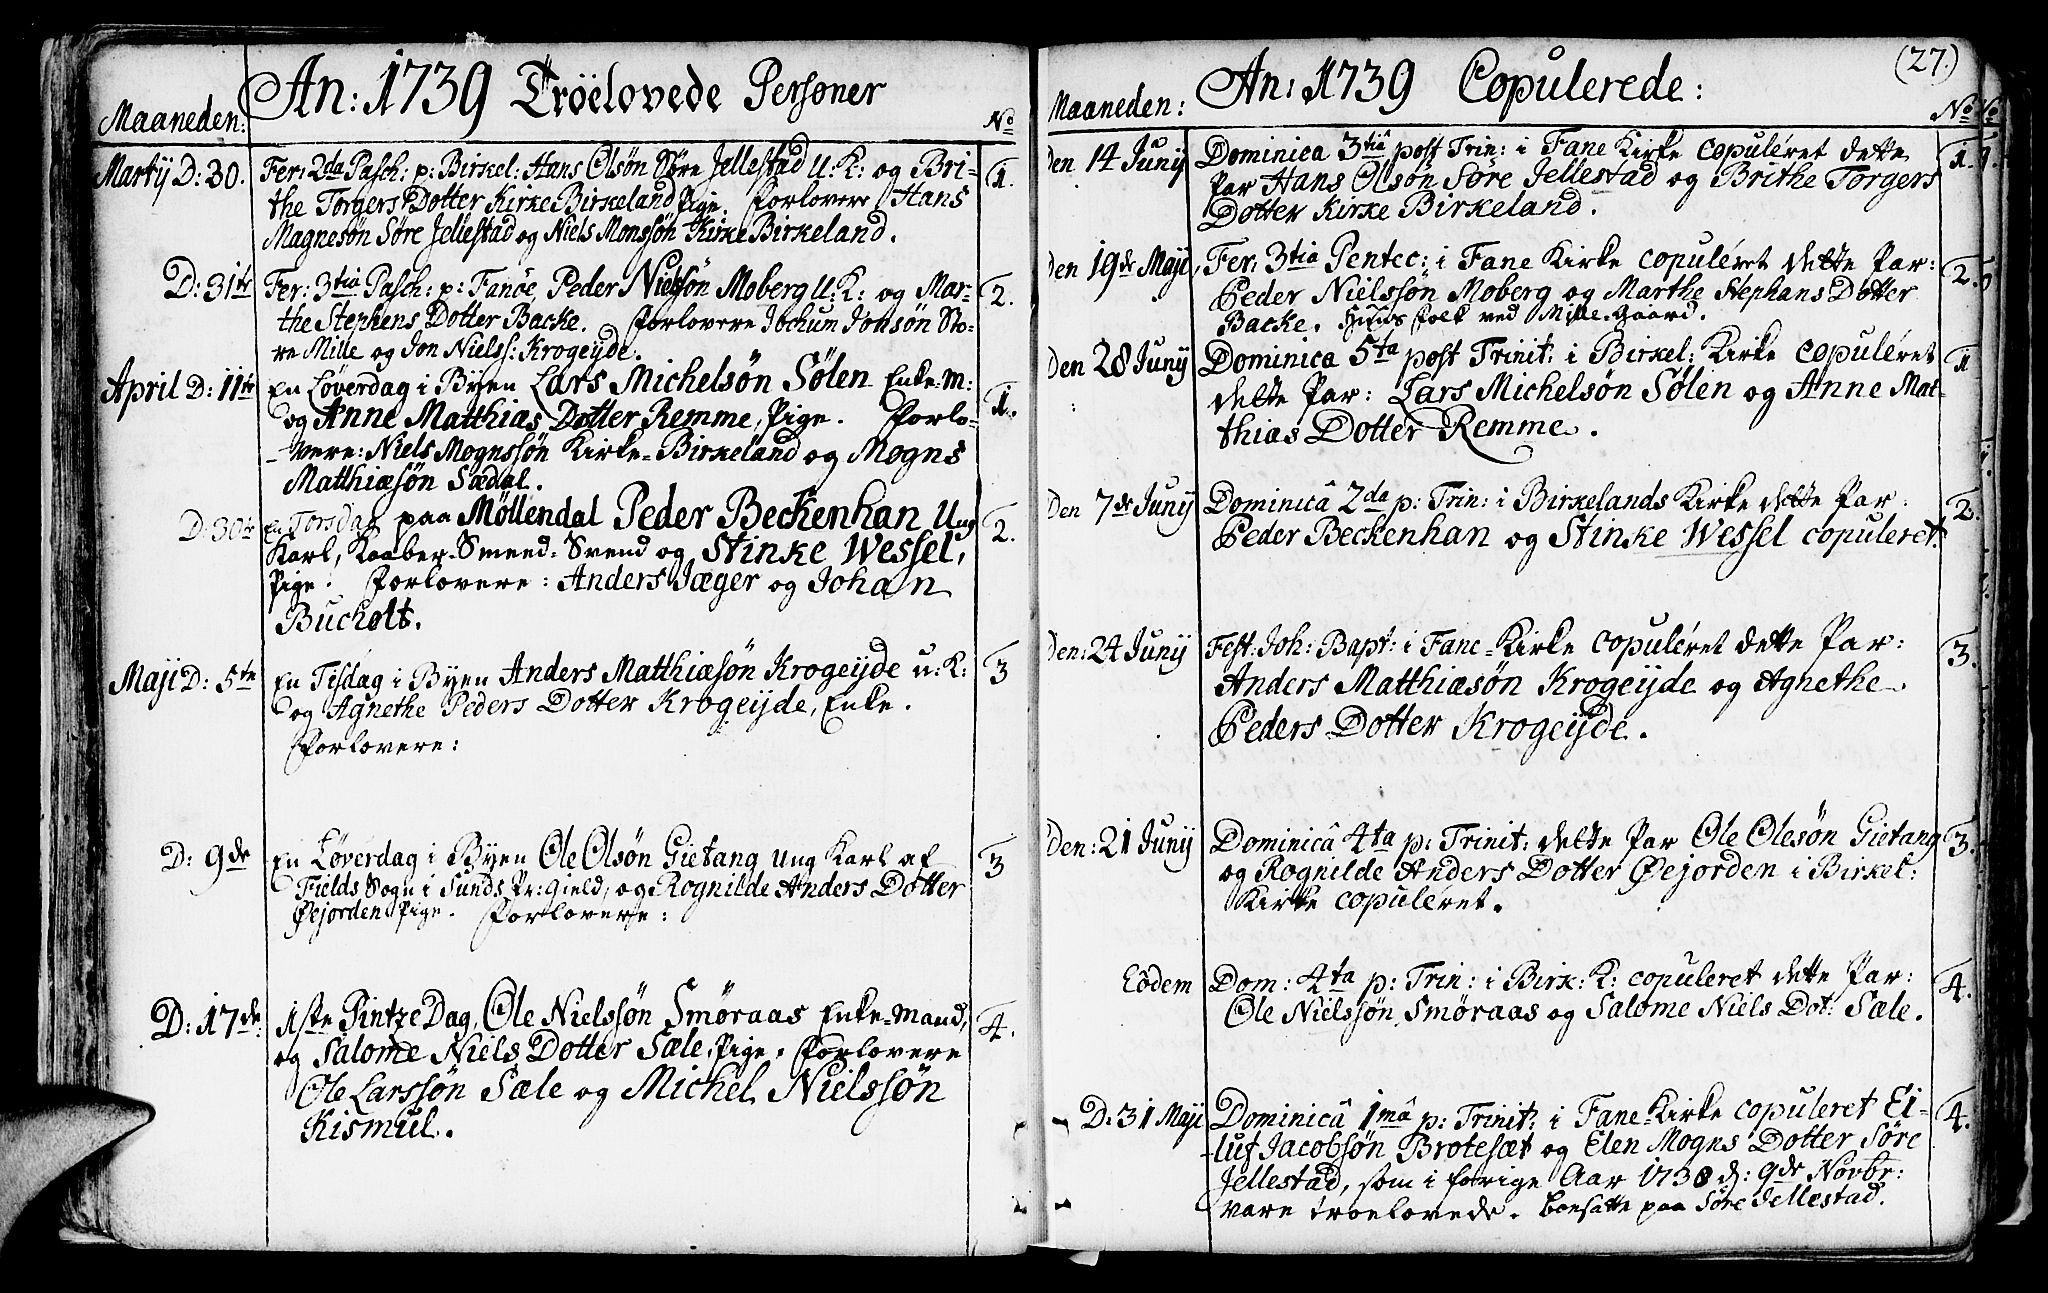 An: 1739 Tröelovede Personer
Maaneden: No
Martij D: 30. Fer: 2da Pasch: p: Birkel: Hans Olsön Söre Jellestad U: K: og Bri- 1.
the Torgers Dotter Kirke Birkeland Pige. Forlovere Hans
Magnesön Söre Jellestad og Niels Monssön Kirke Birkeland.
D: 31te Fer: 3tia Pasch: p: Fanöe, Peder Nielssön Moberg U: K: og Mar- 2.
the Stephens Dotter Backe. Forlovere Jochum Jonsön Sto-
re Mille og Jon Nielss: Krogeijde.
April D: 11te En Löverdag i Byen Lars Michelsön Sölen Enke-M: 1.
og Anne Matthias Dotter Remme, Pige. Forlo-
vere: Niels Mognssön Kirke-Birkeland og Mogns
Matthiæsön Sædal.
D: 30te En Torsdag paa Möllendal Peder Beckenhan Ung 2.
Karl, Kaaber-Smeed-Svend og Stinke Wessel,
Pige. Forlovere: Anders Jæger og Johan
Bucholt.
Maji D: 5te En Tisdag i Byen Anders Matthiæsön Krogeijde u: K: 3
og Agnethe Peders Dotter Krogeijde, Enke.
Forlovere:
D: 9de En Löverdag i Byen Ole Olsön Gietang Ung Karl af 3
Fields Sogn i Sunds Pr: Gield, og Rognilde Anders Dotter
Øejorden Pige. Forlovere:
D: 17de 1ste Pintze Dag, Ole Nielssön Smöraas Enke-Mand, 4.
og Salome Niels Dotter Sæle, Pige. Forlovere
Ole Larssön Sæle og Michel Nielssön
Kismul.
(27.)
An: 1739 Copulerede:
Maaneden: No No
Den 14 Junij Dominica 3tiâ post Trin: i Fane Kirke copuléret dette 1. 1.
Par Hans Olsön Söre Jellestad og Brithe Torgers
Dotter Kirke Birkeland.
Den 19de Maji, Fer: 3tia Pentec: i Fane Kirke copuléret dette Par: 2.
Peder Nielssön Moberg og Marthe Stephans Dotter
Backe. Huus folk ved Mille-Gaard.
Den 28 Junij Dominica 5ta post Trinit: i Birkel: Kirke copuléret 1
dette Par: Lars Michelsön Sölen og Anne Mat-
thias Dotter Remme.
Den 7de Junij Dominicâ 2da p: Trin: i Birkelands Kirke dette Par: 2.
Peder Beckenhan og Stinke Wessel copuleret.
Den: 24 Junij Fest: Joh: Bapt: i Fane-Kirke copuléret dette Par: 3.
Anders Matthiæsön Krogeijde og Agnethe
Peders Dotter Krogeijde.
Den: 21 Junij Dominicâ 4ta p: Trinit: dette Par Ole Olesön Gietang 3.
og Rognilde Anders Dotter Øejorden i Birkel:
Kirke copuléret.
Eödem Dom: 4ta p: Trin: i Birk: K: copuleret dette Par: 4.
Ole Nielssön Smöraas og Salome Niels Dot: Sæle.
D: 31 Maji Dominicâ 1mâ p: Trinit: i Fane-Kirke copuleret Ei- 4.
luf Jacobsön Brotesæt og Elen Mogns Dotter Söre
Jellestad, som i forige Aar 1738 d: 9de Novbr:
vare troelovede. Boesatte paa Söre Jellestad.